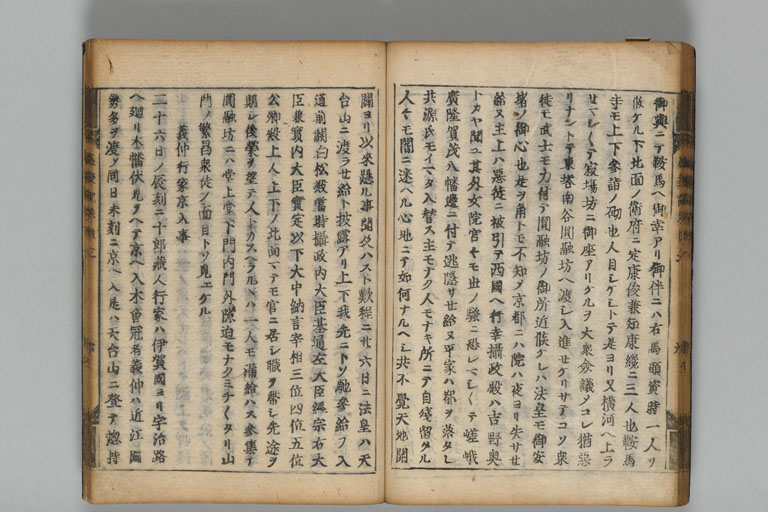 御輿ニテ鞍馬ヘ御幸アリ御伴ニハ右馬頭資時一人ソ
候ケル下北面ノ衛府ニ定康俊兼知康纔ニ三人也鞍馬
寺モ上下参詣ノ砌也人目シケシトテ是ヨリ又横河ヘ上ラ
セマシ〱テ寂場坊ニ御座アリケルヲ大衆僉議ソコレ猶
リナントテ東塔南谷圓融坊ヘ渡シ入進セケリサテコソ衆
徒モ武士モ力付テ圓融坊ノ御所近候ケレハ法皇モ御安
堵ノ御心也是ヲ角トモ不知ノ京都ニハ院ハ夜ヨリ失サセ
給ヌ主上ハ惡徒ニ被引テ西國ヘ行幸攝政殿ハ吉野奥
トカヤ聞ユ其外女院宮〻モ世ノ騒ニ恐レマシ〱テ嵯峨
廣隆賀茂八幡邊ニ付テ逃隠サセ給ヌ平家ハ都ヲ落タレ
共源氏モイマタ入替ス主モナク人モナキ所ニテ自残留タル
人〻モ闇ニ迷ヘル心地ニテ如何ナルヘシ共不覺天地開
闢ヨリ以來懸ル事聞及ハスト歎程ニ廿六日ニ法皇ハ天
台山ニ渡ラセ給ト披露アリ上下我先ニトソ馳参給フ入
道前關白松殿當時攝政内大臣基通左大臣經宗右大
臣兼實内大臣實定以下大中納言宰相三位四位五位
公卿殿上人上下ノ北面マテモ官ニ居シ職ヲ帶シ先途ヲ
期シ後榮ヲ望テ人トカスヘラルヽハ一人モ漏給ハス参集テ
圓融坊ニハ堂上堂下門内門外隙迫モナクミチ〱タリ山
門ノ繁昌衆徒ノ面目トソ見エケル
義仲行家京入事
二十六日ノ辰刻ニ十郎藏人行家ハ伊賀國ヨリ宇治路
ヘ廻リ木幡伏見ヲヘテ京ヘ入木曾冠者義仲ハ近江國
勢多ヲ渡ノ同日未刻ニ京ヘ入是ハ天台山ニ登テ惣持